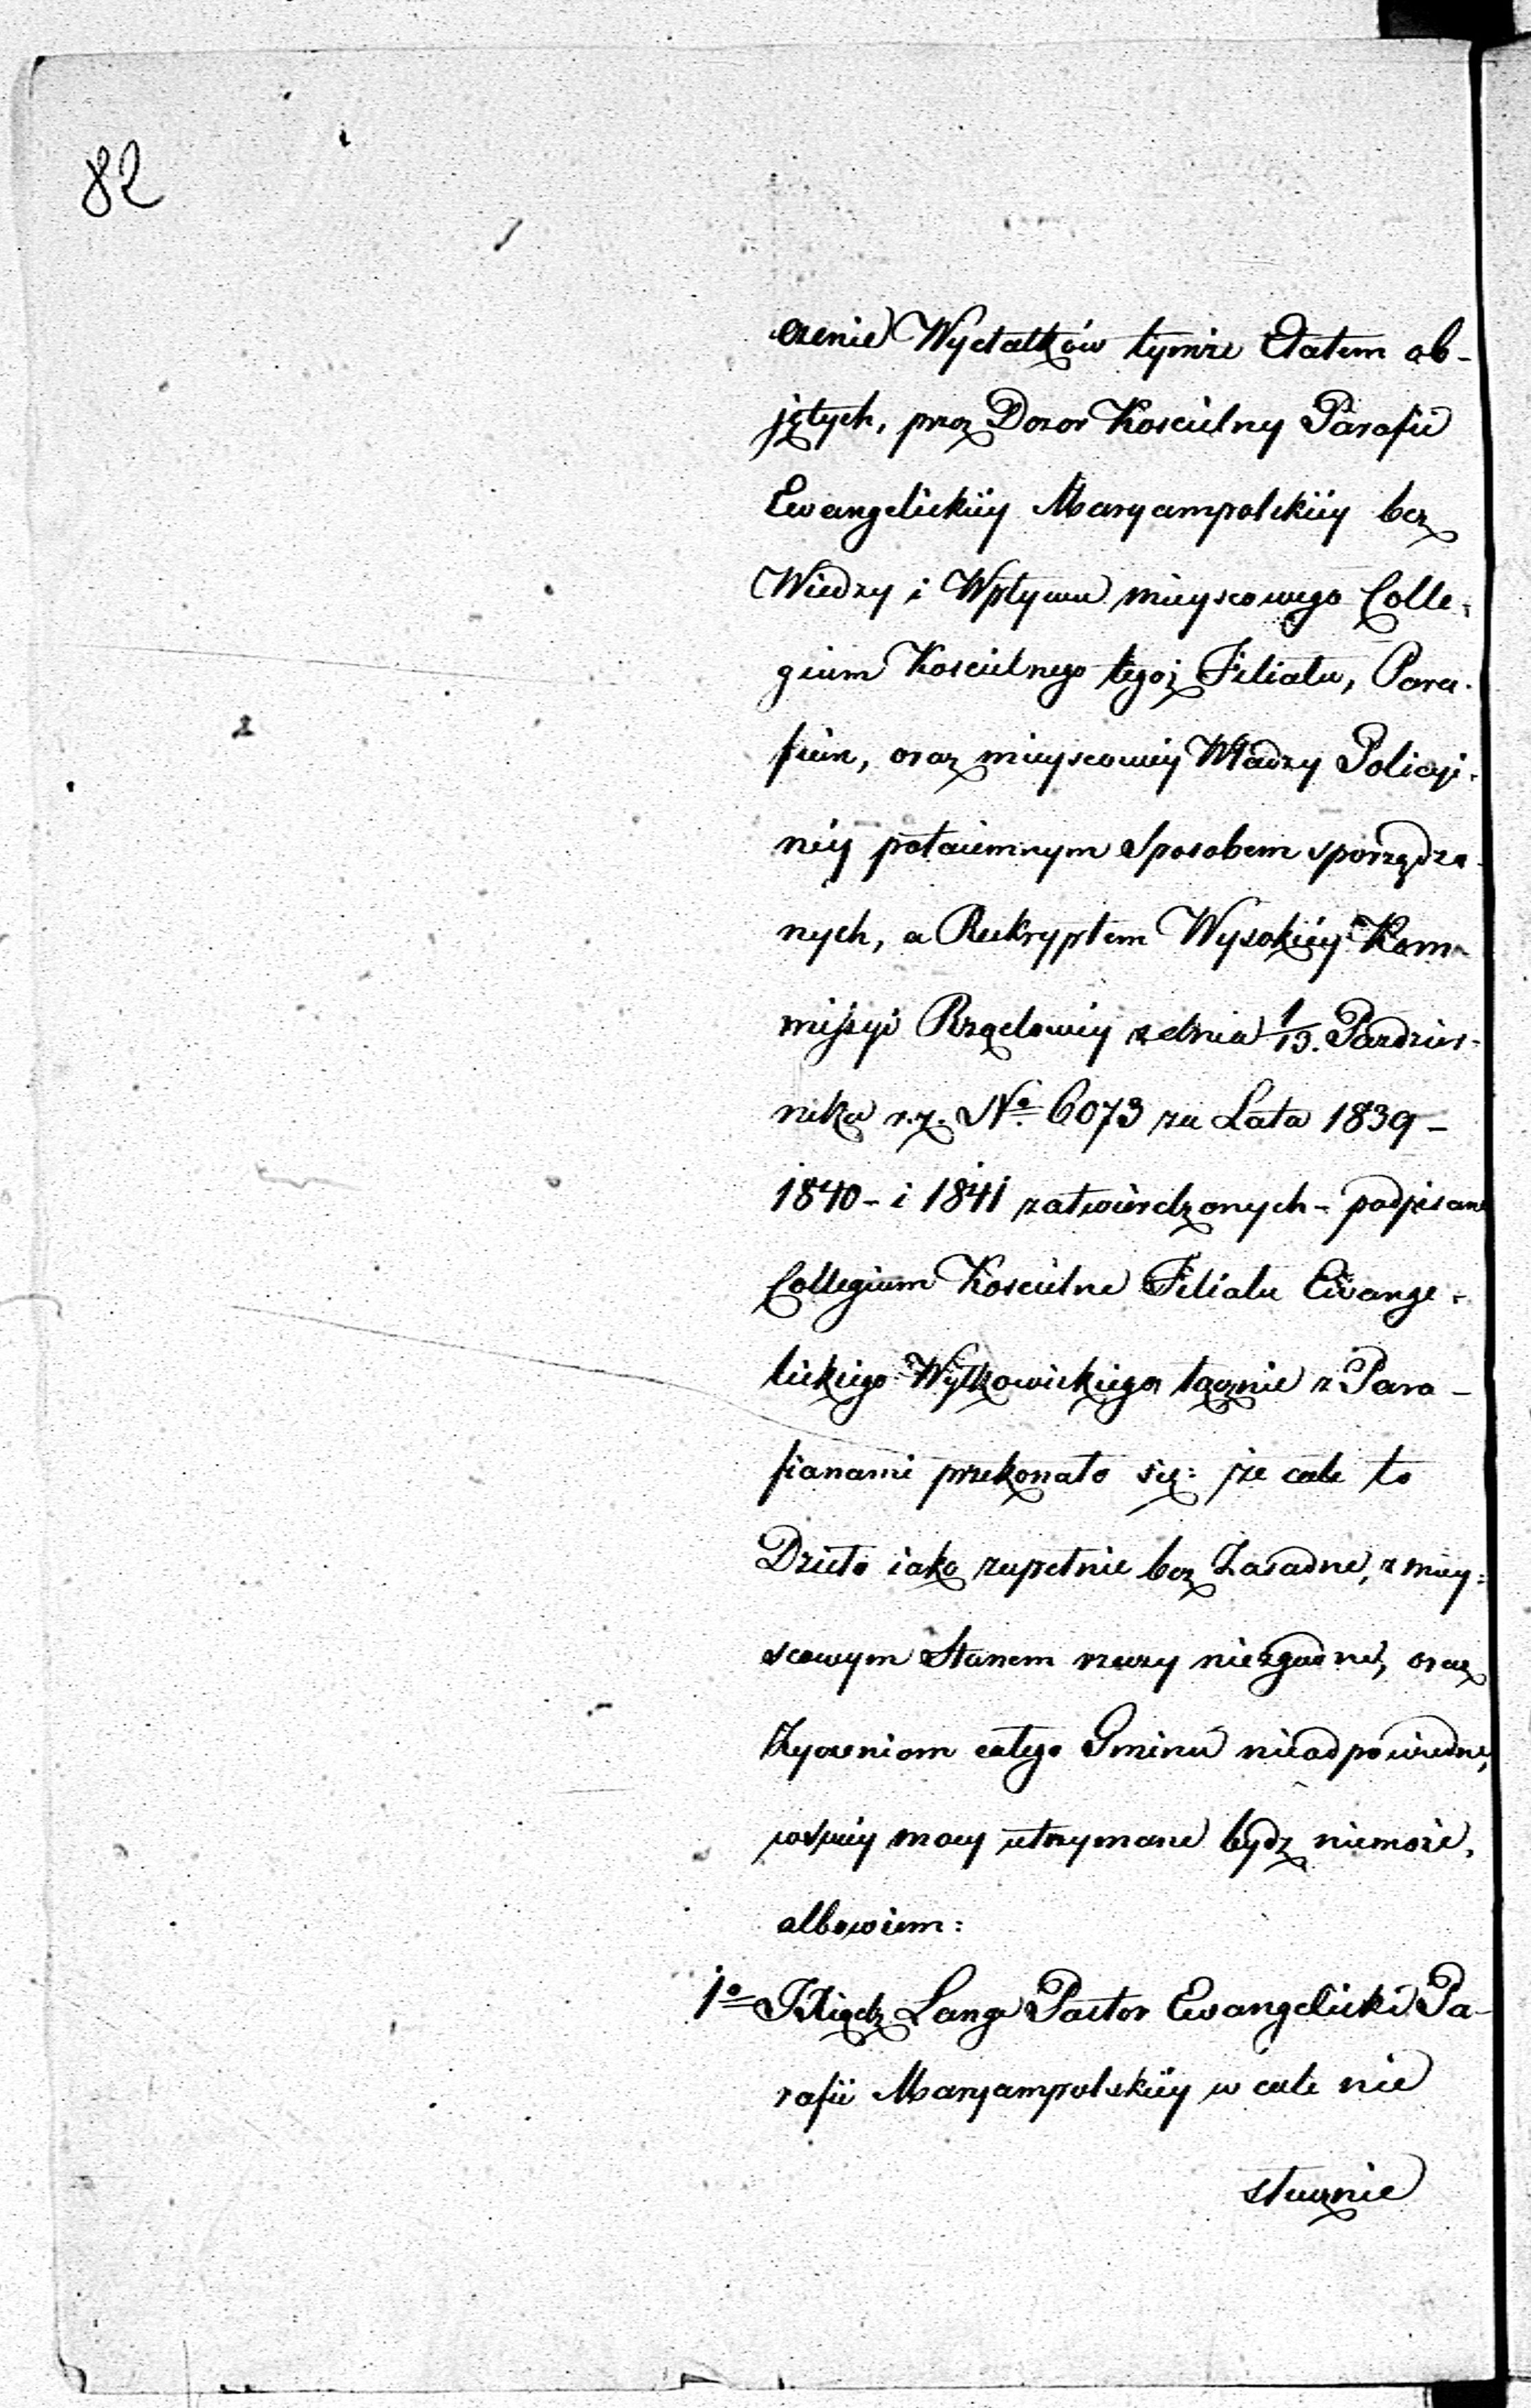 82
czenie Wydatków tymże Etatem ob-
jętych, przez Dozor Koscielny Parafii
Ewangelickiéy Maryampolskiéy bez
Wiedzy i Wpływu mieyscowego Colle-
gium Koscielnego tegoż Filialu, Para-
fian, oraz mieyscowéy Władzy Policyi-
néy potaiemnym Sposobem sporządzo-
nych, a Reskryptem Wysokiéy Kom-
missyi Rządowéy z dnia 1/13. Pazdzier-
nika r. z. No. 6073 za Lata 1839-
1840 - i 1841 zatwierdzonych - podpisane
Collegium Koscielne Filialu Ewange-
lickiego Wyłkowickiego łącznie z Para-
fianami przekonało się: że całe to
Dzieło iako zupełnie bez Zasadne, z miey-
scowym Stanem rzeczy niezgodne, oraz
Życzeniom całego Gminu nieodpowiedne,
w swéy mocy utrzymane bydz niemoże,
albowiem:
1o Xsiądz Lange Pastor Ewangelicki Pa-
rafii Maryampolskiéy w cale nie
słusznie